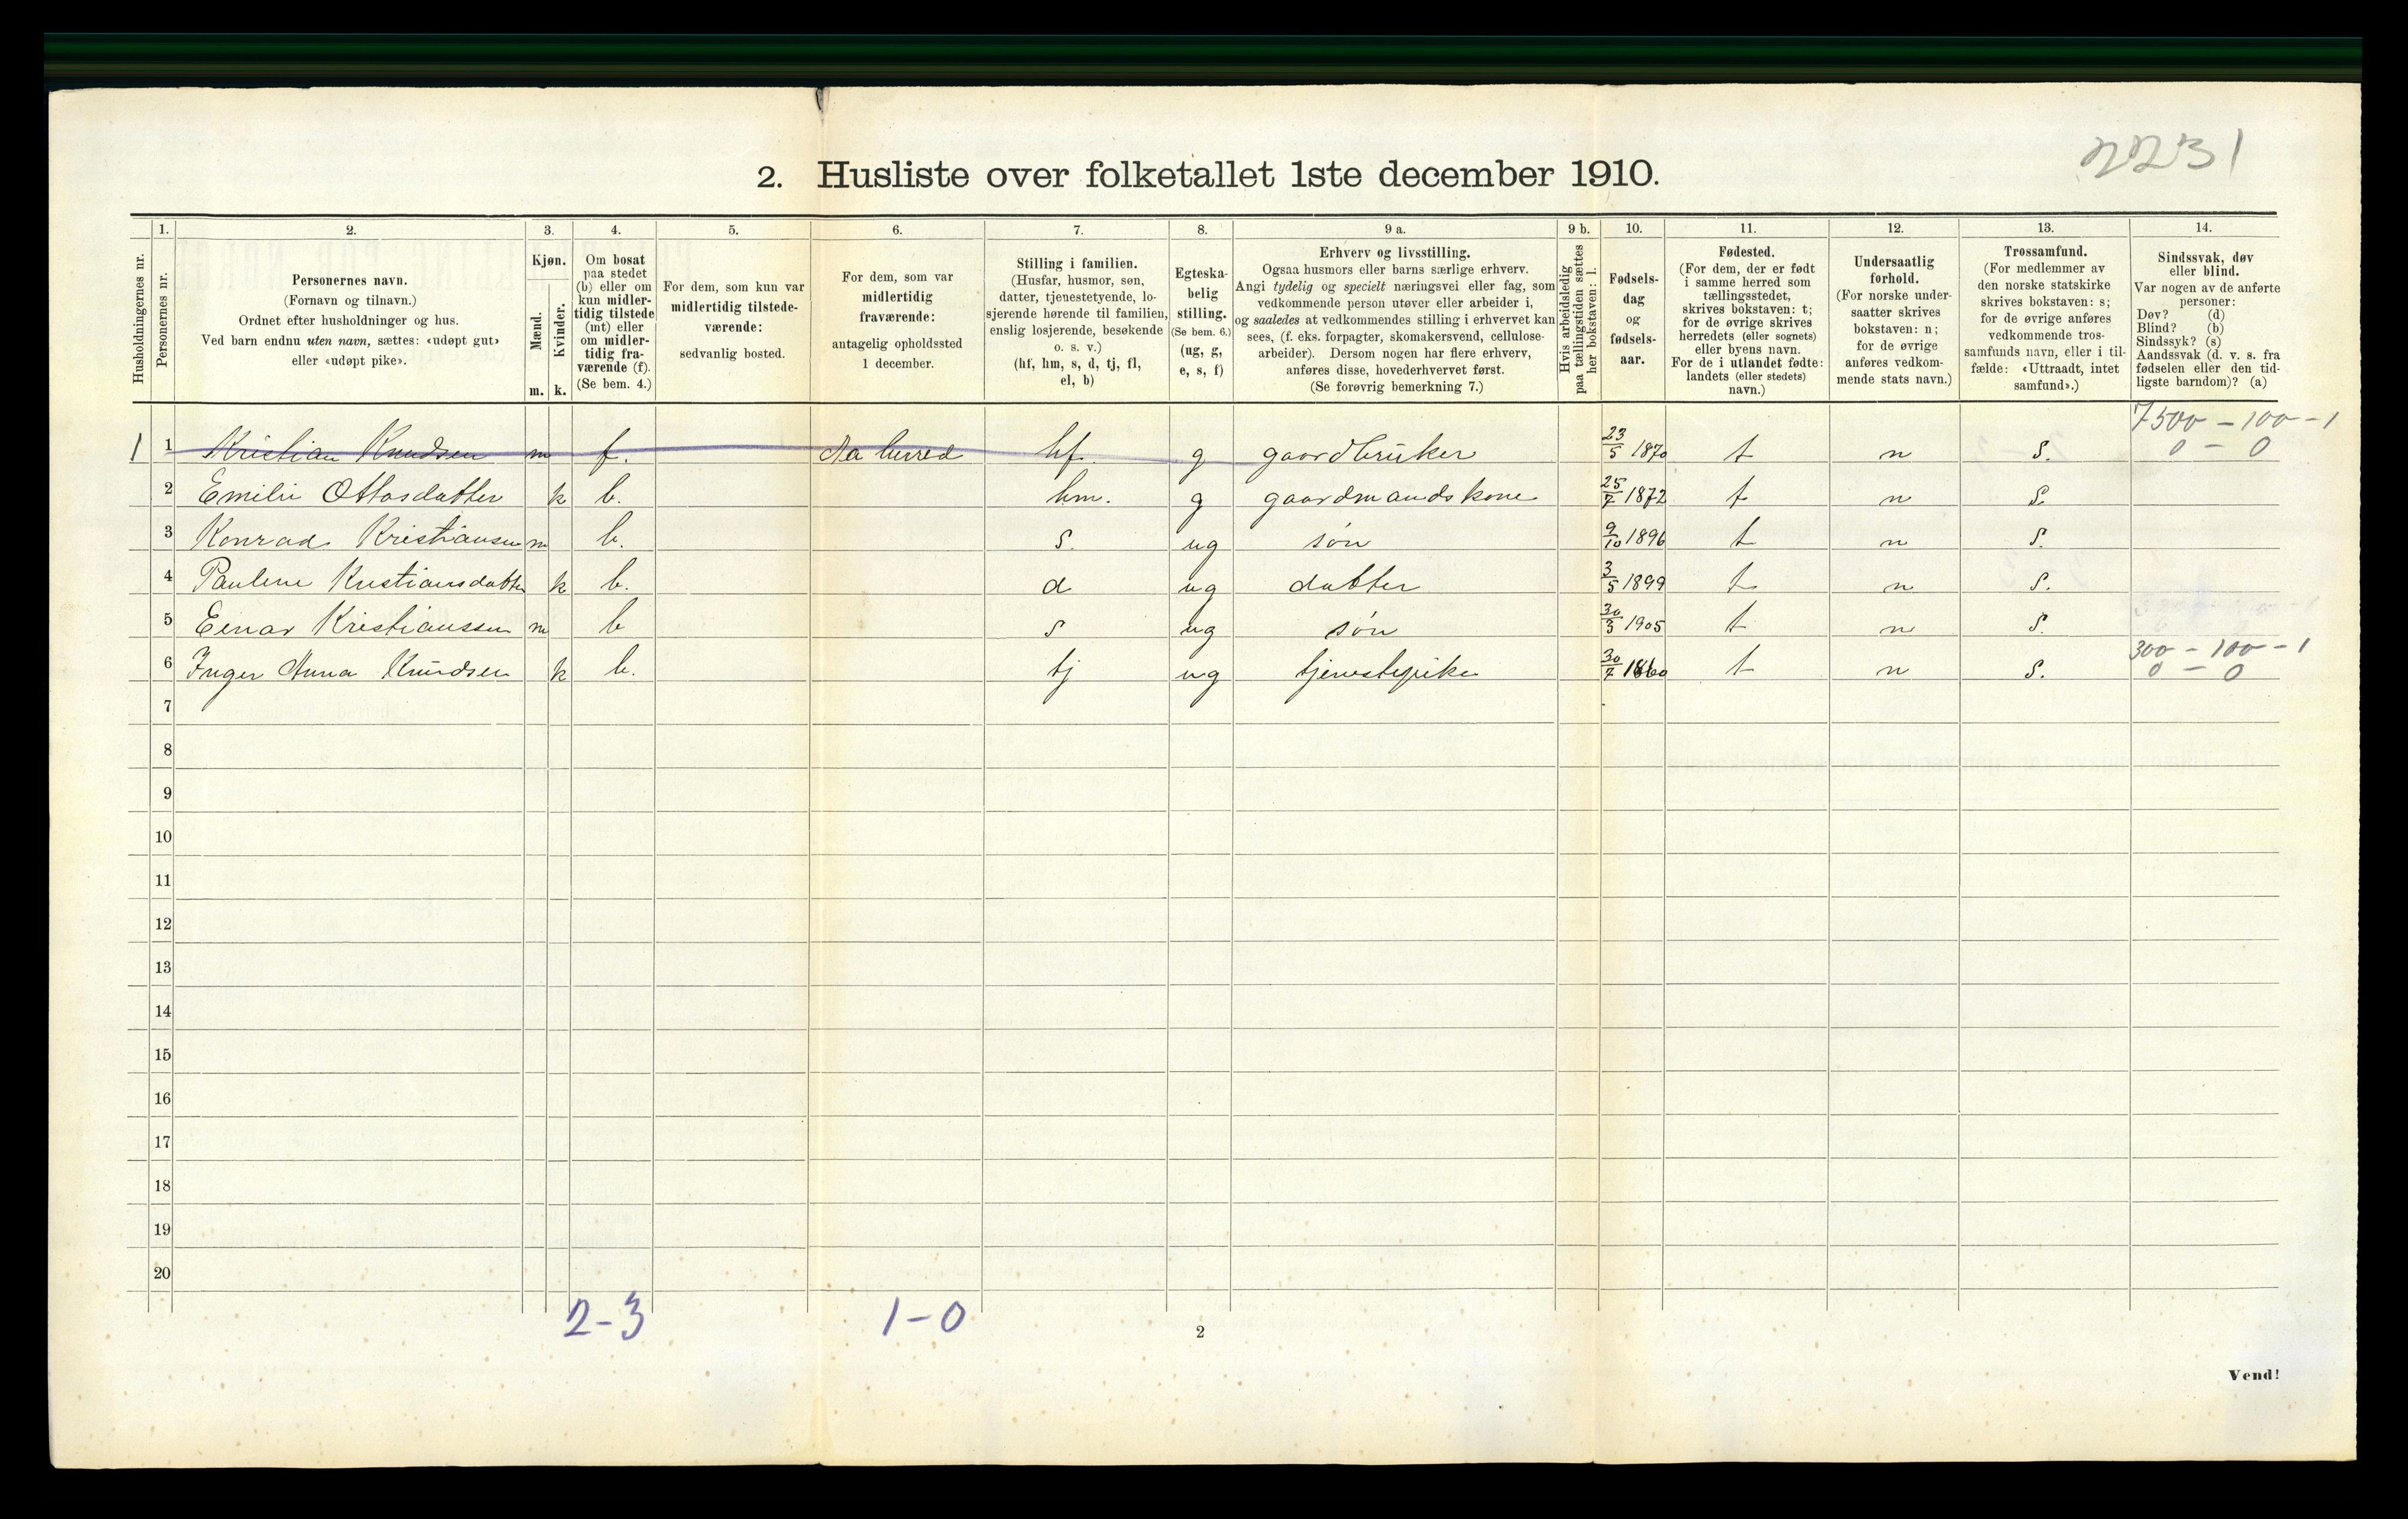 2231
2. Husliste over folketallet 1ste december 1910.
Husholdningernes nr.
1.
Personernes nr.
2.
Personernes navn.
(Fornavn og tilnavn.)
Ordnet efter husholdninger og hus.
Ved barn endnu uten navn, sættes: «udøpt gut»
eller «udøpt pike».
3.
Kjøn.
Mænd.
Kvinder.
m. k.
4.
Om bosat
paa stedet
(b) eller om
kun midler-
tidig tilstede
(mt) eller
om midler-
tidig fra-
værende (f).
(Se bem. 4.)
5.
For dem, som kun var
midlertidig tilstede-
værende:
sedvanlig bosted.
6.
For dem, som var
midlertidig
fraværende:
antagelig opholdssted
1 december.
7.
Stilling i familien.
(Husfar, husmor, søn,
datter, tjenestetyende, lo-
sjerende hørende til familien,
enslig losjerende, besøkende
o. s. v.)
(hf, hm, s, d, tj, fl,
el, b)
8.
Egteska-
belig
stilling.
(Se bem. 6.)
(ug, g,
e, s, f)
9 a.
Erhverv og livsstilling.
Ogsaa husmors eller barns særlige erhverv.
Angi tydelig og specielt næringsvei eller fag, som
vedkommende person utøver eller arbeider i,
og saaledes at vedkommendes stilling i erhvervet kan
sees, (f. eks. forpagter, skomakersvend, cellulose-
arbeider). Dersom nogen har flere erhverv,
anføres disse, hovederhvervet først.
(Se forøvrig bemerkning 7.)
9 b.
Hvis arbeidsledig
paa tællingstiden sættes
her bokstaven: l.
10.
Fødsels-
dag
og
fødsels-
aar.
11.
Fødested.
(For dem, der er født
i samme herred som
tællingsstedet,
skrives bokstaven: t;
for de øvrige skrives
herredets (eller sognets)
eller byens navn.
For de i utlandet fødte:
landets (eller stedets)
navn.)
12.
Undersaatlig
forhold.
(For norske under-
saatter skrives
bokstaven: n;
for de øvrige
anføres vedkom-
mende stats navn.)
13.
Trossamfund.
(For medlemmer av
den norske statskirke
skrives bokstaven: s;
for de øvrige anføres
vedkommende tros-
samfunds navn, eller i til-
fælde: «Uttraadt, intet
samfund».)
14.
Sindssvak, døv
eller blind.
Var nogen av de anførte
personer:
Døv? (d)
Blind? (b)
Sindssyk? (s)
Aandssvak (d. v. s. fra
fødselen eller den tid-
ligste barndom)? (a)
7500 - 100 - 1
1 1 Kristian Knudsen m f. Aa herred hf. g gaardbruker 23/5 1870 t n S. 0 - 0
2 Emilie Ottosdatter k b. hm. g gaardmandskone 25/7 1872 t n S.
3 Konrad Kristiansen m b. S. ug søn 9/10 1896 t n S.
4 Pauline Kristiansdatter k b. d ug datter 3/5 1899 t n S.
5 Einar Kristianssen m b S ug søn 30/3 1905 t n S.
300 - 100 - 1
6 Inger Anna Knudsen k b. tj ug tjenestepike 30/7 1860 t n S. 0 - 0
7
8
9
10
11
12
13
14
15
16
17
18
19
20
2-3 1-0
2
Vend!